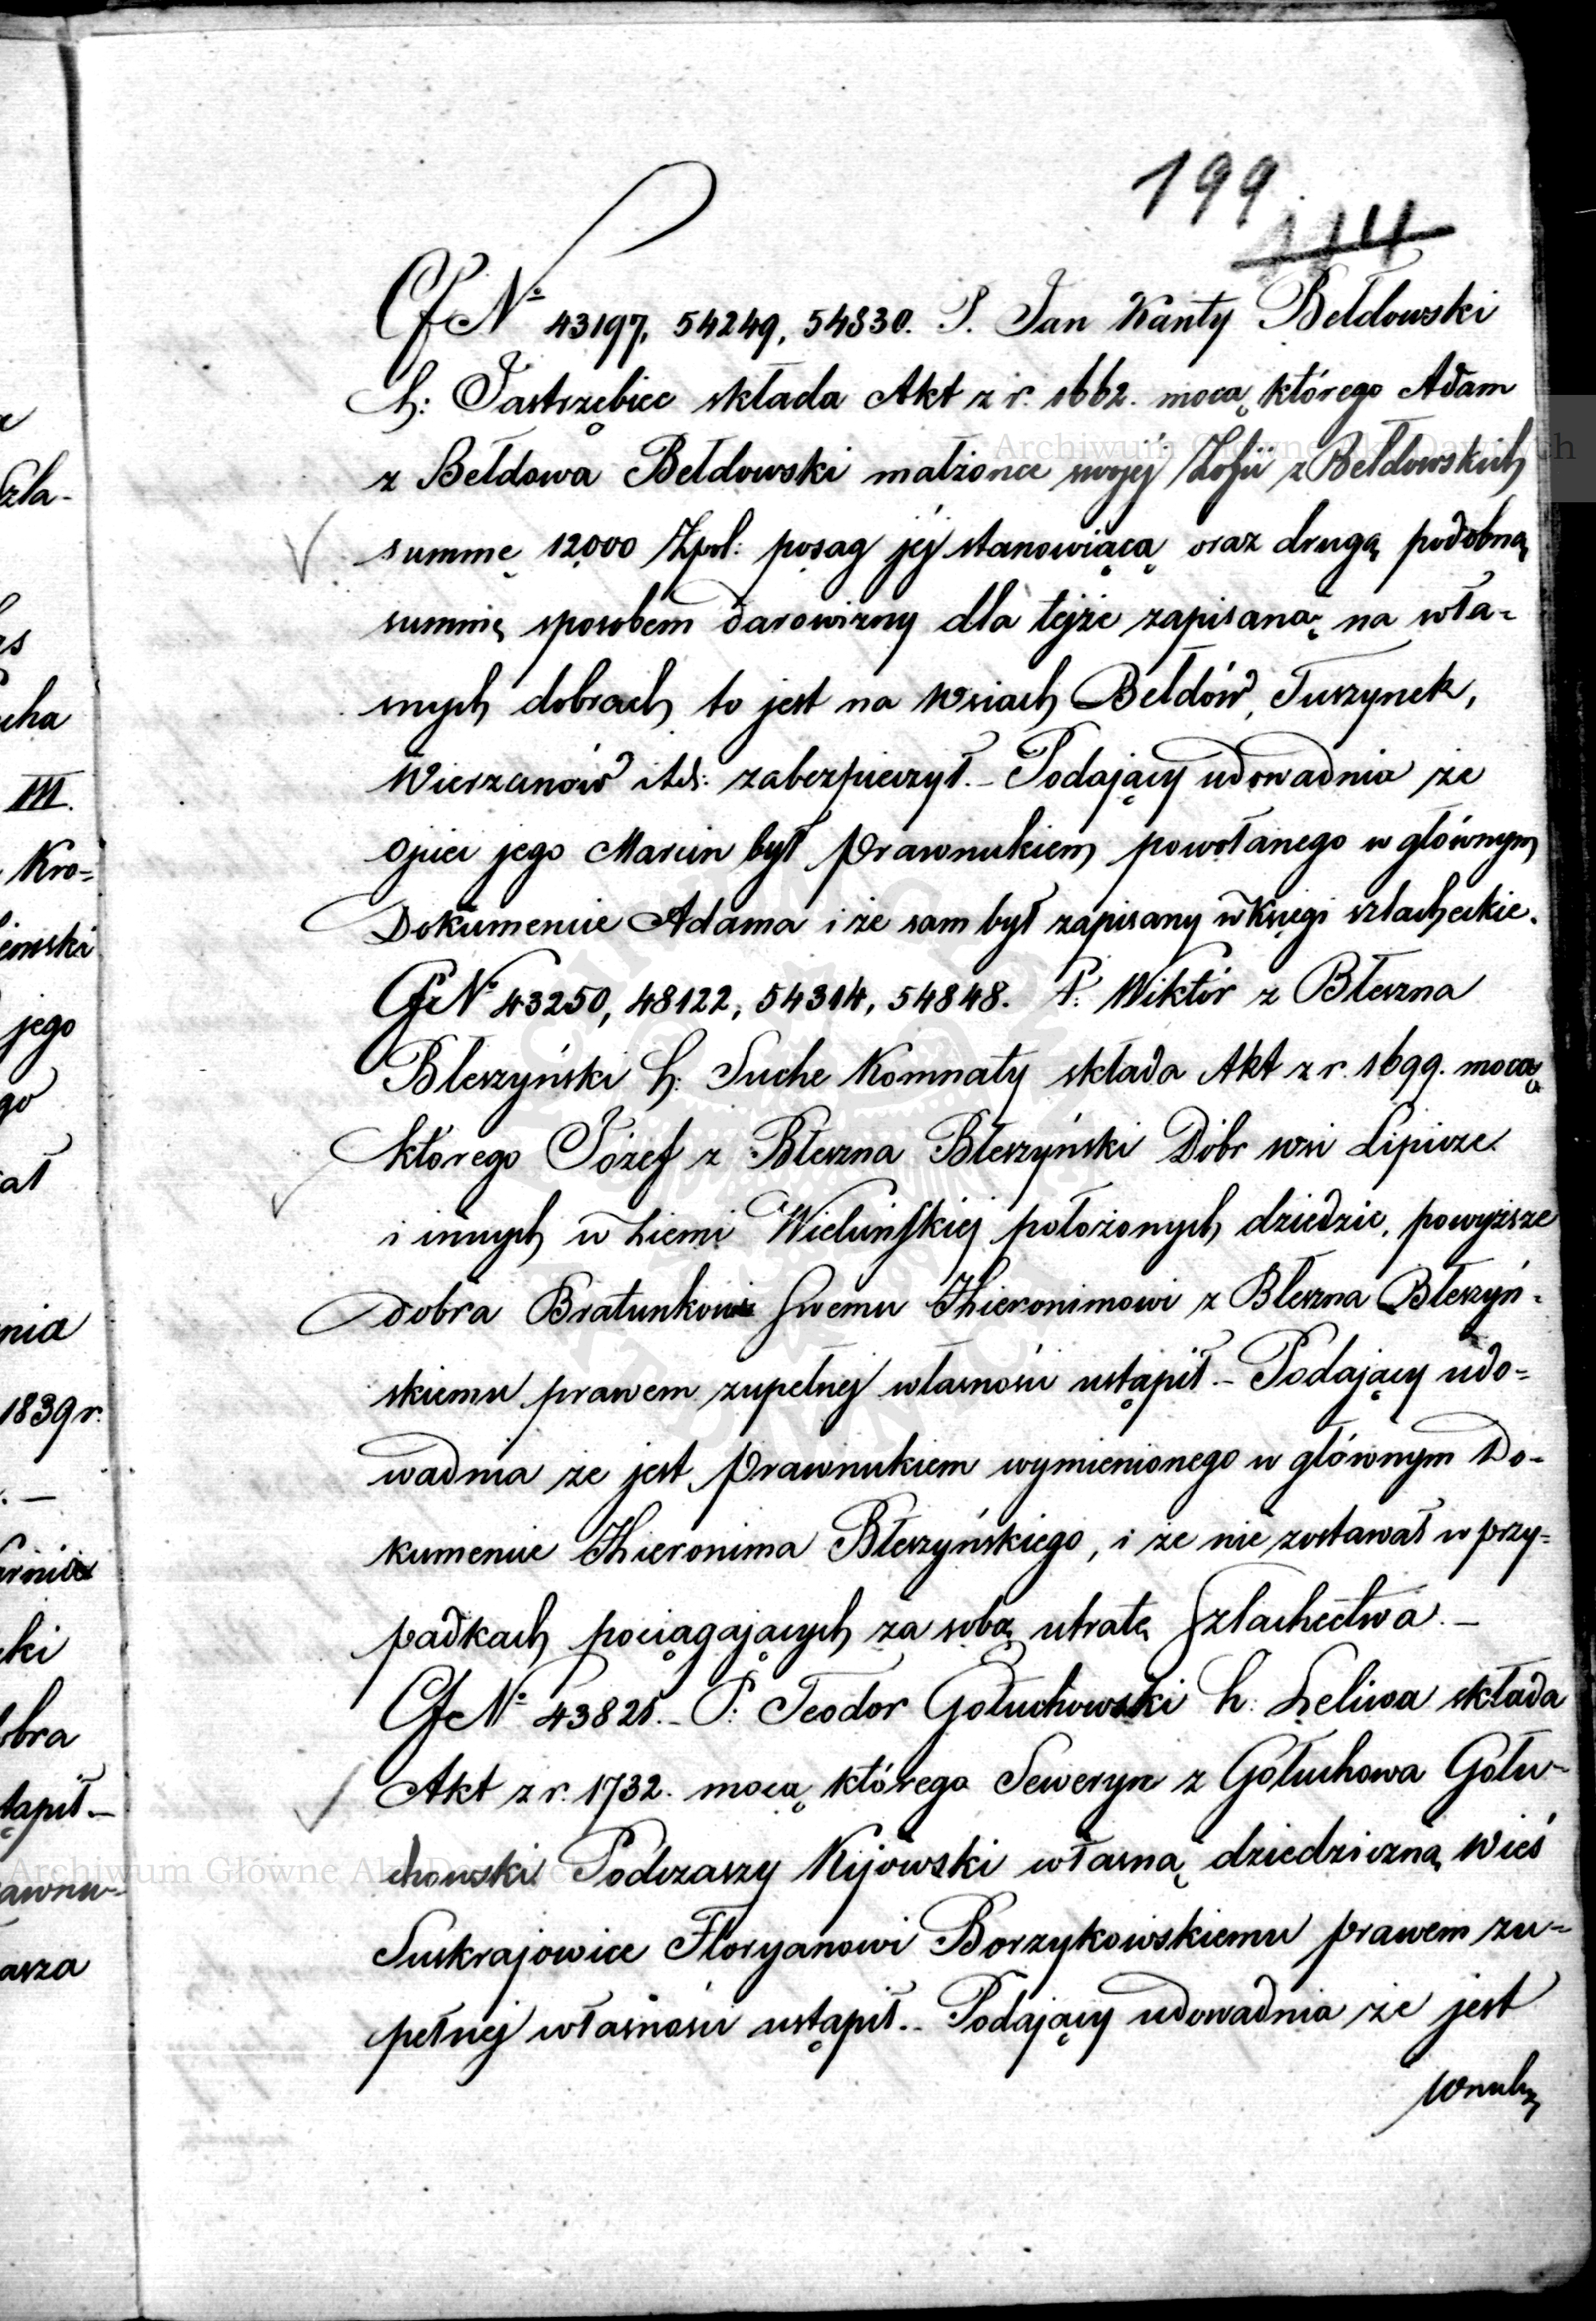 199
114
Nº 43197, 54249, 54830. P. Jan Kanty Bełdowski
h: Jastrzębiec składa Akt z r. 1662. mocą którego Adam
z Bełdowa Bełdowski małżonce swojéj Zofii z Bełdowskich
summę 12,000 Złpol: posag jéj stanowiącą oraz drugą podobną
summę sposobem darowizny dla tejże zapisaną na wła-
snych dobrach to jest na Wsiach Bełdów, Tuszynek,
Wierzanów itd: zabezpieczył. – Podający udowadnia że
Ojciec jego Marcin był Prawnukiem powołanego w głównym
Dokumencie Adama i że sam był zapisany w księgi szlacheckie.
Nº 43250, 48122, 54314, 54848. P. Wiktór z Błeszna
Błeszyński h: Suche Komnaty składa Akt z r. 1699. mocą
którego Józef z Błeszna Błeszyński Dóbr wsi Lipicze
i innych w Ziemi Wieluńskiej położonych dziedzic, powyższe
dobra Bratunkowi Swemu Hieronimowi z Błeszna Błeszyń-
skiemu prawem zupełnej własności ustąpił. – Podający udo-
wadnia że jest Prawnukiem wymienionego w głównym Do-
kumencie Hieronima Błeszyńskiego, i że nie zostawał w przy-
padkach pociągających za sobą utratę Szlachectwa. –
Nº 43825. – P. Teodor Gołuchowski h. Leliwa składa
Akt z r. 1732. mocą którego Seweryn z Gołuchowa Gołu-
chowski Podczaszy Kijowski własną dziedziczną Wieś
Suskrajowice Floryanowi Borzykowskiemu prawem zu-
pełnej własności ustąpił. – Podający udowadnia że jest
Wnukiem